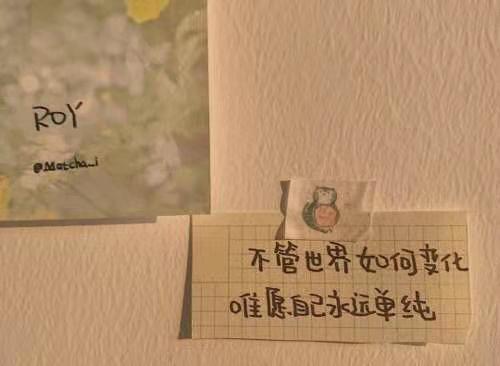 ROY
@Matcha_i
不管世界如何变化
唯愿自己永远单纯